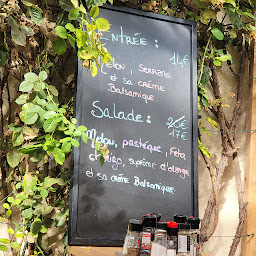 Entrée : 14€
Melon, Serrano
et sa crème
Balsamique
Salade : 20€
17€
Melon, pastèque, Feta
et sa crème Balsamique